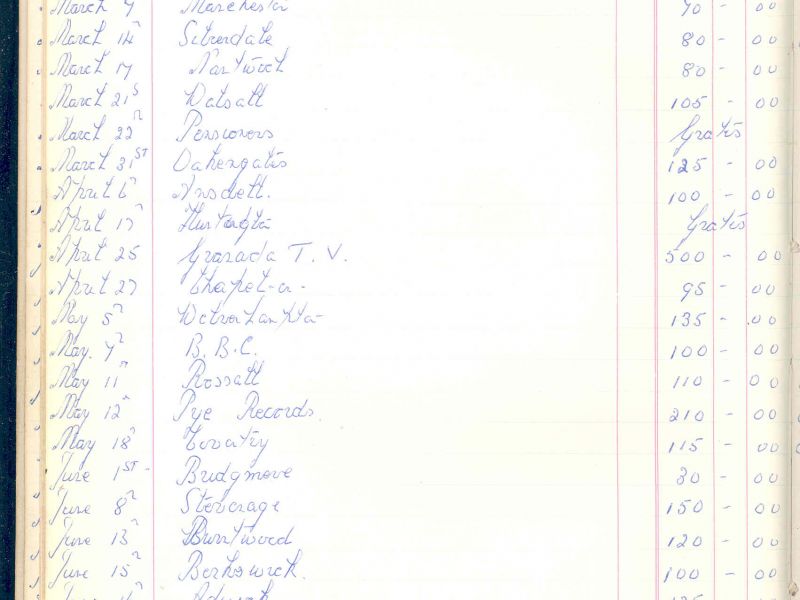 March 7 Manchester 70 - 00
March 14 80 - 00
March 17 Nantwich 80 - 00
March 21S Walsall 105 - 00
March 22n Pensioners Gratis
March 31ST Oakengatis 125 - 00
April 6 Ansdell. 100 - 00
April 17 Gratis
April 25 Granada T. V. 500 - 00
April 27 Chapel-a- 95 - 00
May 5n 135 - 00
May. 7n B. B. C. 100 - 00
May 11n Rossall 110 - 00
May 12n Pye Records. 210 - 00
May 18n Coventry 115 - 00
June 1ST - Bridgmere 30 - 00
June 8n Stevenage 150 - 00
June 13n Burntwood 120 - 00
June 15n Berkswick. 100 - 00